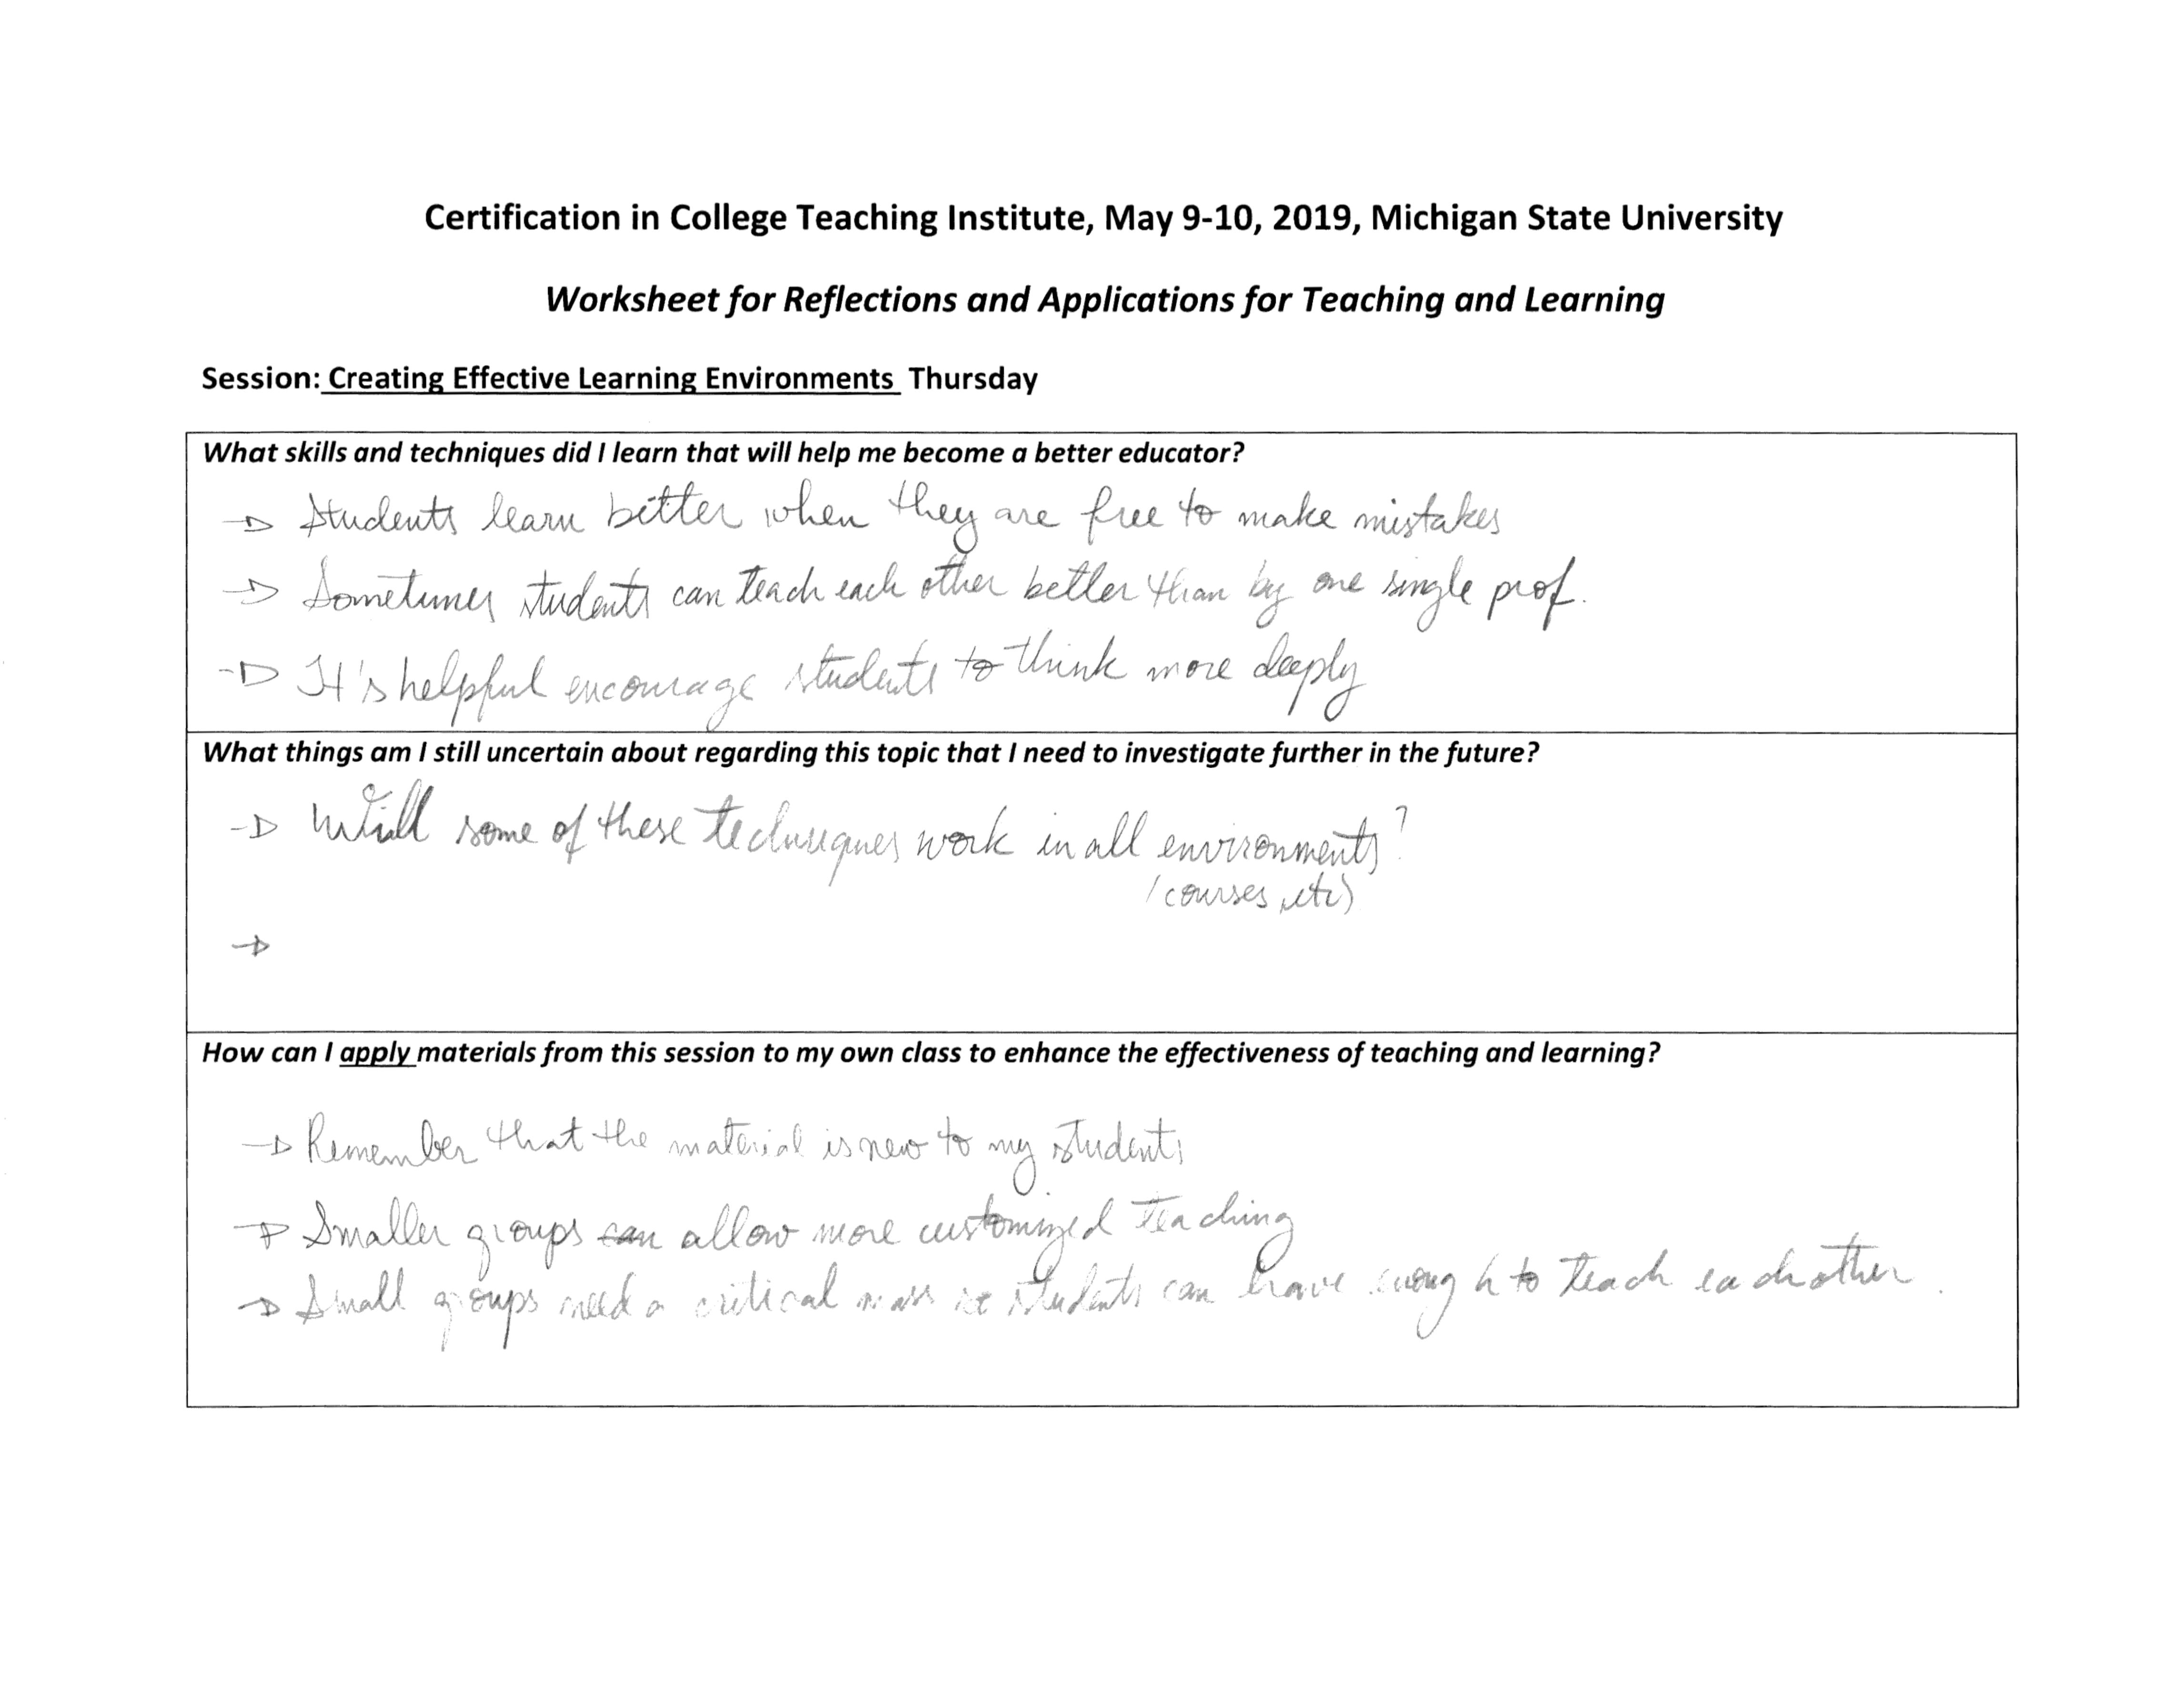 Certification in College Teaching Institute, May 9-10, 2019, Michigan State University
Worksheet for Reflections and Applications for Teaching and Learning
Session: Creating Effective Learning Environments Thursday
What skills and techniques did I learn that will help me become a better educator?
→ Students learn better when they are free to make mistakes
→ Sometimes students can teach each other better than by one single prof.
→ It's helpful encourage students to think more deeply
What things am I still uncertain about regarding this topic that I need to investigate further in the future?
→ Will some of these techniques work in all environments?
(courses, etc)
→
How can I apply materials from this session to my own class to enhance the effectiveness of teaching and learning?
→ Remember that the material is new to my students
→ Smaller groups can allow more customized teaching
→ Small groups need a critical mass students can have enough to teach each other.